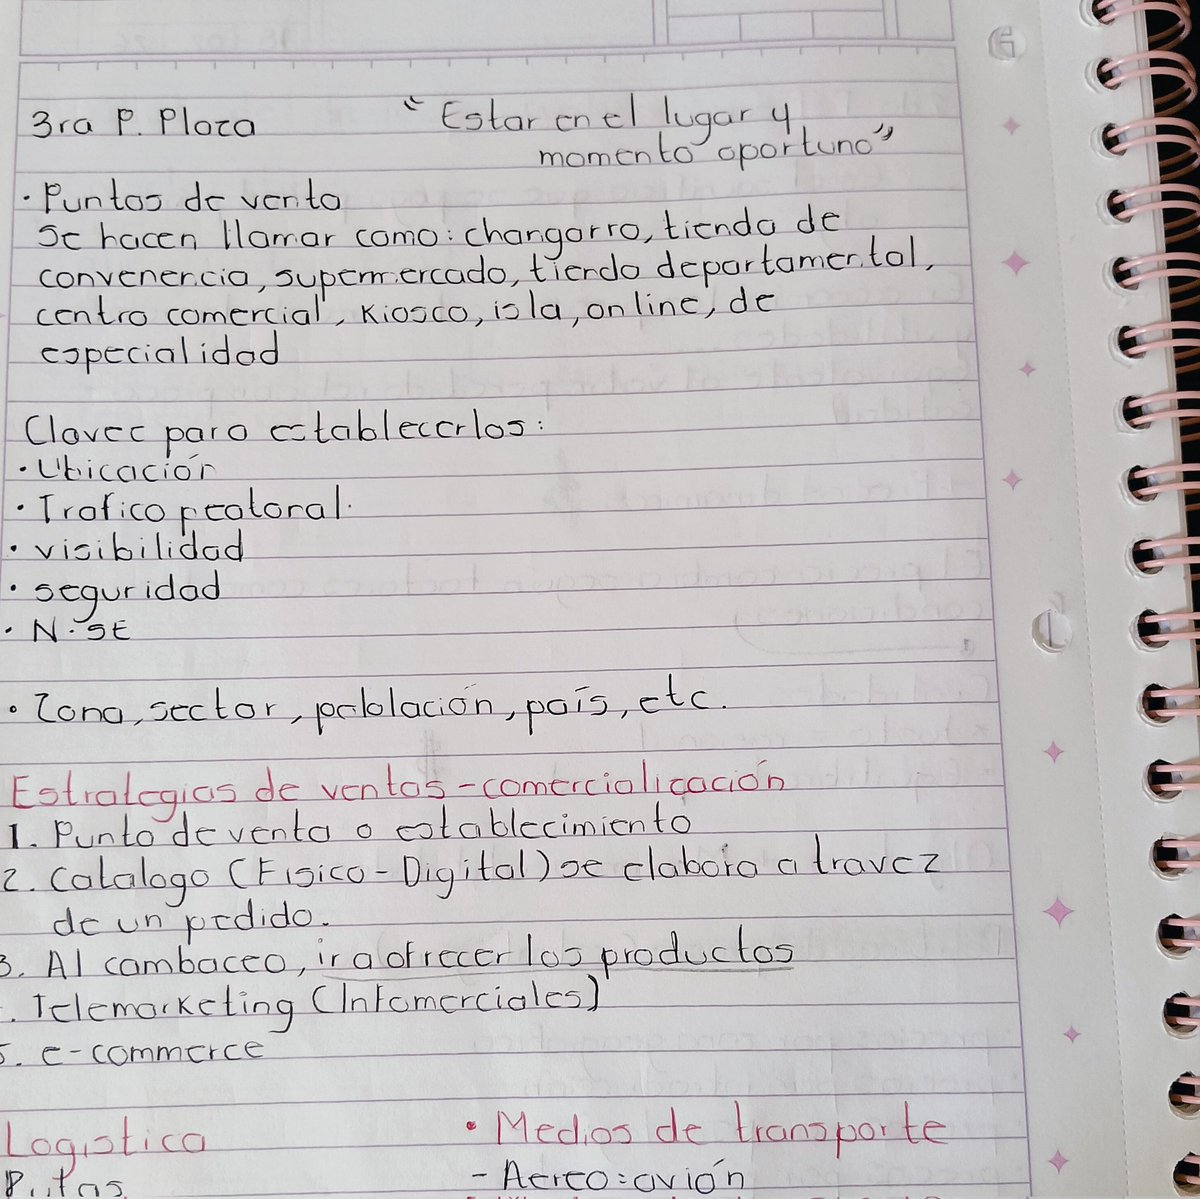 3ra P. Plaza
“Estar en el lugar y
momento oportuno”
· Puntos de venta
Se hacen llamar como: changarro, tienda de
convenencia, supermercado, tienda departamental,
centro comercial, Kiosco, isla, online, de
especialidad
Claves para establecerlos:
· Ubicación
· Trafico peatonal.
· visibilidad
· seguridad
· N.SE
· Zona, sector, población, país, etc.
Estrategias de ventas - comercialización
1. Punto de venta o establecimiento
2. Catalogo (Fisico - Digital) se elabora a travez
de un pedido.
3. Al cambaceo, ir a ofrecer los productos
. Telemarketing (Infomerciales)
5. e-commerce
Logistica
Rutas
· Medios de transporte
- Aereo: avión